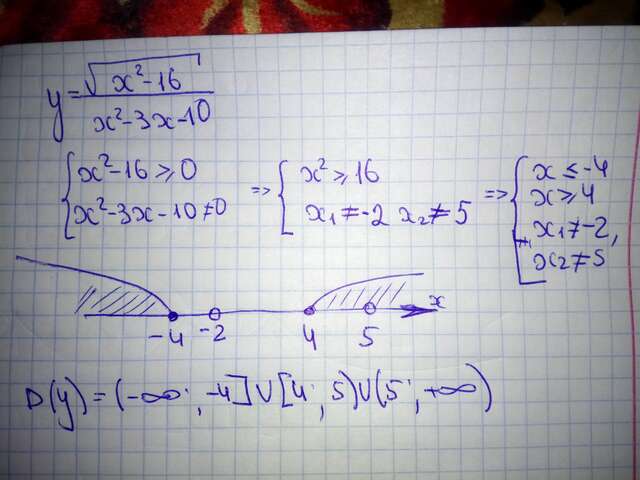 y = √(x²-16) / x²-3x-10
{ x²-16 ≥ 0
x²-3x-10 ≠ 0
=> { x² ≥ 16
x₁ ≠ -2 x₂ ≠ 5
=> { x ≤ -4
x ≥ 4
x₁ ≠ -2,
x₂ ≠ 5
-4 -2 4 5 x
D(y) = (-∞; -4] ∪ [4; 5) ∪ (5; +∞)